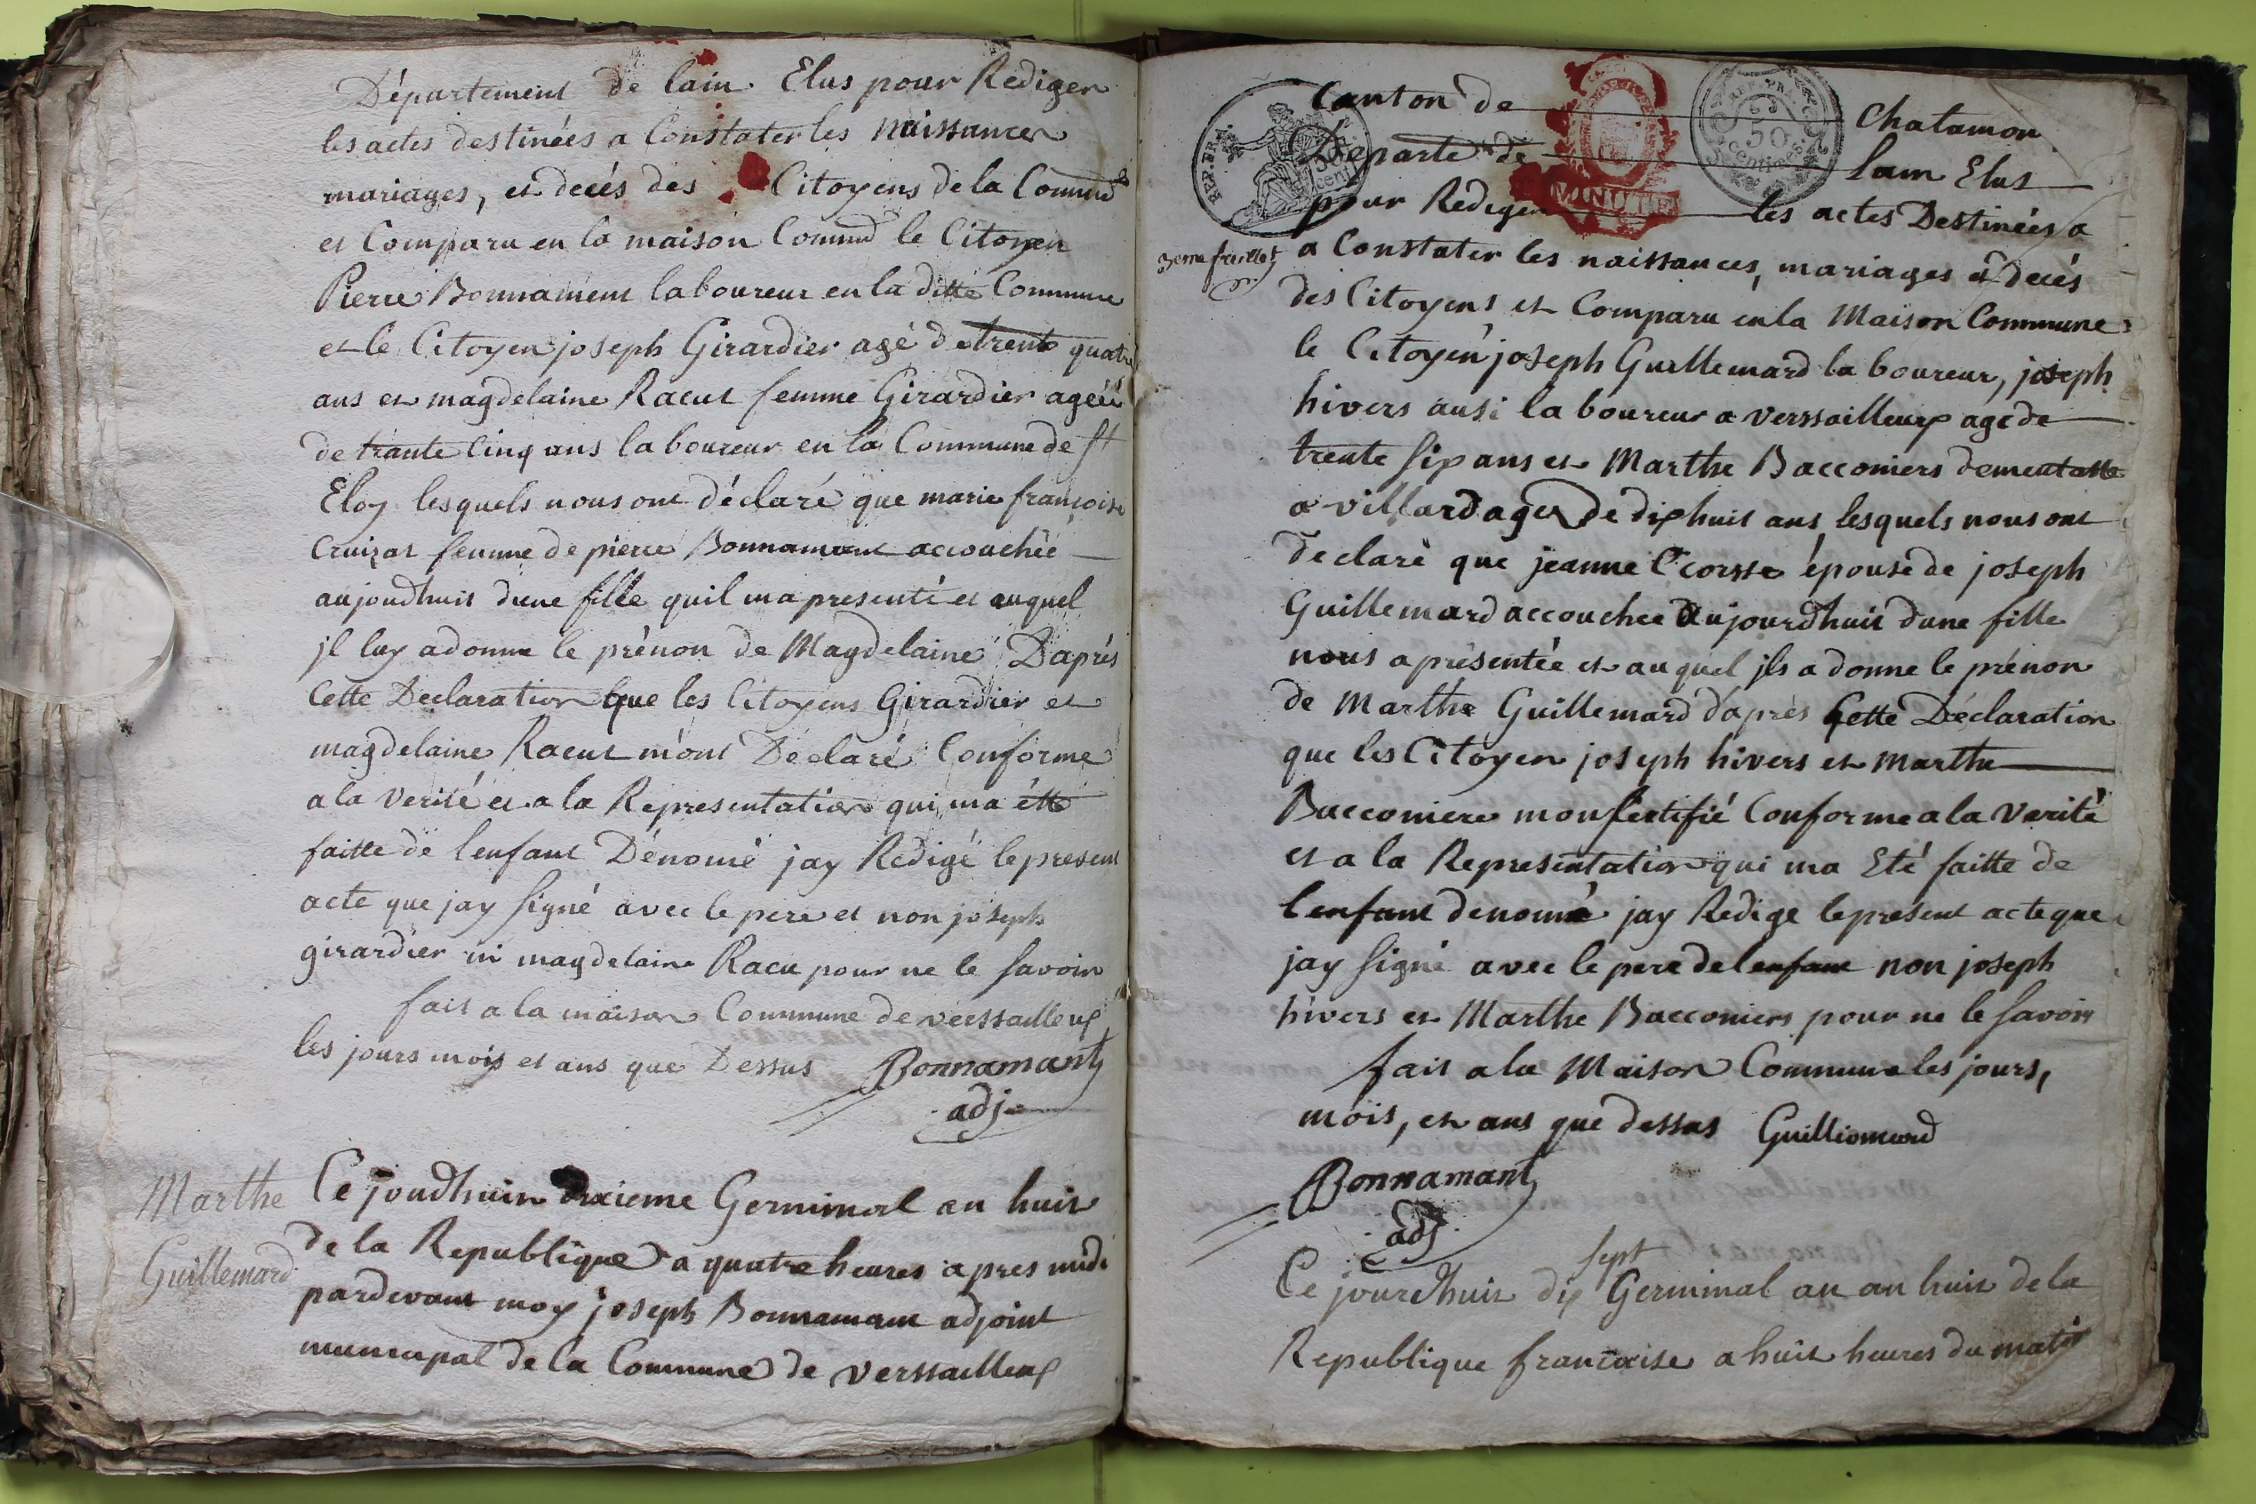 Département de lain Elus pour Rediger
les actes destinées a Constater les Naissances
mariages, et decés des Citoyens de la Commune
et Comparu en la maison Commne le Citoyen
Pierre Bonnament laboureur en la ditte Commune
et le Citoyen joseph Girardier agé de trente quatre
ans et magdelaine Racut femme Girardier ageéé
de trante Cinq ans laboureur en la Commune de St
Eloy lesquels nous ont déclaré que marie francoise
Cruizat femme de pierre Bonnamant accouchée
aujoudhuit dune fille quil ma presenté et auquel
jl luy a donne le prénon de Magdelaine D'aprés
Cette Declaration que les Citoyens Girardier et
magdelaine Racut m'ont Déclaré Conforme
a la verité et a la Representation qui ma étté
faitte de lenfant Dénomé jay Rédigé le present
acte que jay signé avec le pere et non joseph
girardier ni magdelaine Racu pour ne le savoir
fait a la maison Commune de verssailleux
les jours mois et ans que Dessus Bonnamant
adj
Marthe
Guillemard
Ce joudhuit dixieme Germinal an huit
de la Republique a quatre heures apres midi
pardevant moy joseph Bonnamant adjoint
municipal de la Commune de verssailleux
REP. FRA.
50 cent
MINUTE
REP. FRA.
50
centimes
Canton de Chalamon
Departe de lain Elus
pour Rediger les actes Destinées a
3eme feuillet
a Constater les naissances, mariages et decés
des Citoyens et Comparu en la Maison Commune
le Citoyen joseph Guillemard laboureur, joseph
hivers ausi laboureur a verssailleux age de
trente six ans et Marthe Bacconiers demeutante
a villard agée de dixhuit ans, lesquels nous ont
declaré que jeanne Ecorsse épouse de joseph
Guillemard accouchee aujourdhuit dune fille
nous a présentée et auquel jls a donne le prénon
de Marthe Guillemard d'aprés Cette Déclaration
que les Citoyen joseph hivers et marthe
Bacconiere mon Certifié Conforme a la verité
et a la Representation qui ma Eté faitte de
lenfant denommé jay Redige le present acte que
jay signé avec le pere de lenfant non joseph
hivers et Marthe Bacconiers pour ne le savoir
fait a la Maison Commune les jours,
mois, et ans que dessus Guilliomard
Bonnamant
adj
Ce jourdhuit dix sept Germinal an an huit de la
Republique francaise a huit heures du matin